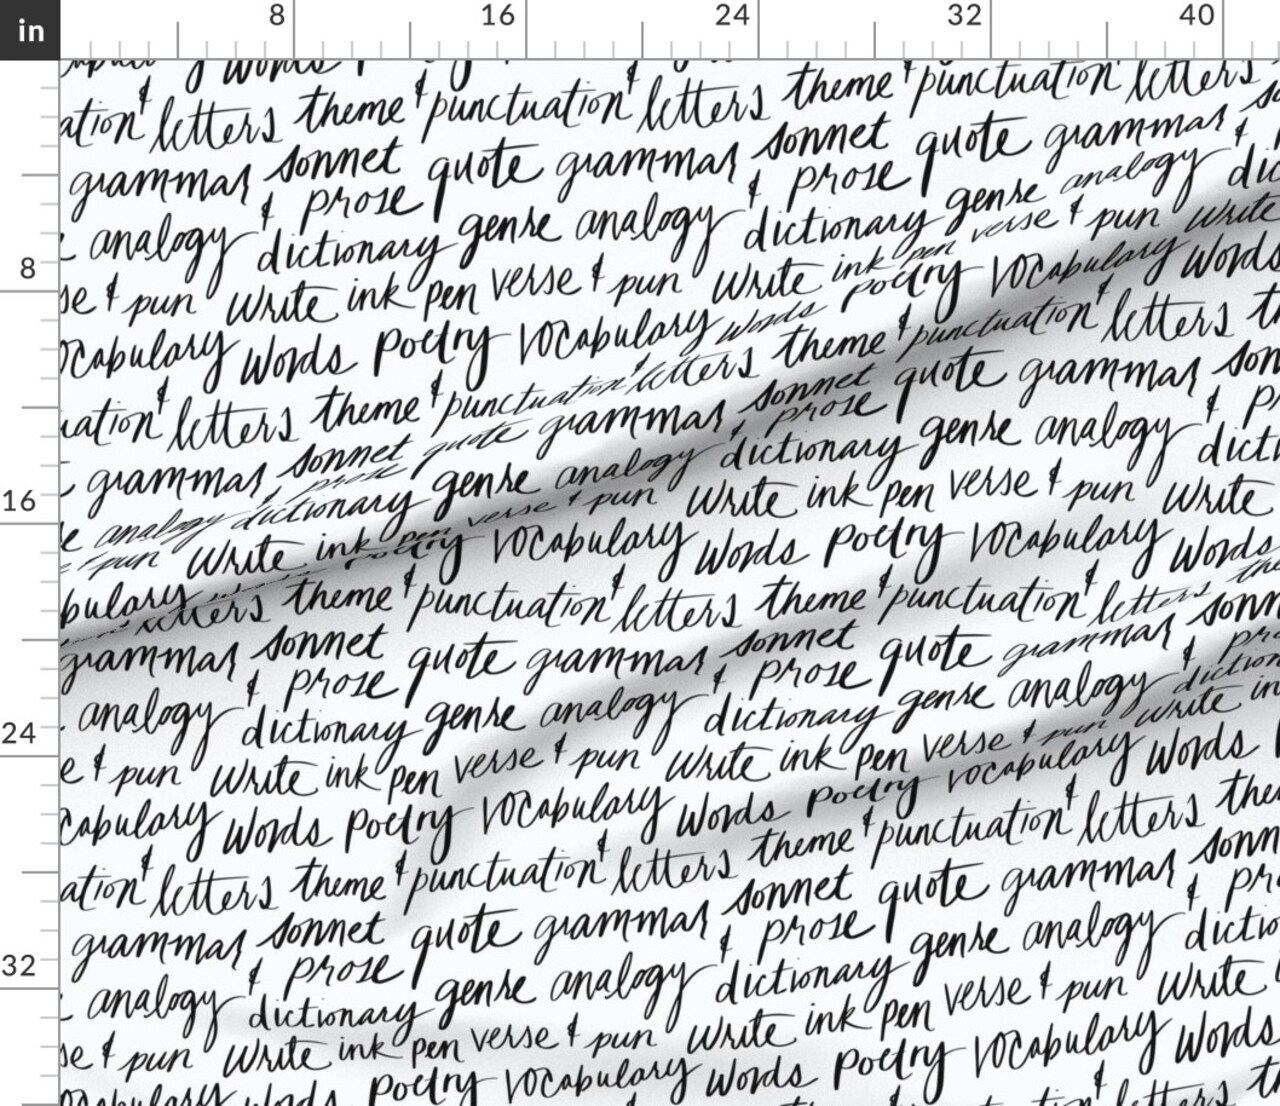 in 8 16 24 32 40
words
ation & letters theme & punctuation & letters theme & punctuation letters
grammar sonnet quote grammar sonnet quote grammar
& prose & prose &
analogy dictionary genre analogy dictionary genre analogy
& pun write ink pen verse & pun write ink pen verse & pun write
8
vocabulary words poetry vocabulary words poetry vocabulary words
ation & letters theme & punctuation & letters theme & punctuation & letters
grammar sonnet quote grammar sonnet quote grammar
prose & prose &
analogy dictionary genre analogy dictionary genre analogy
16
& pun write ink pen verse & pun write ink pen verse & pun write
bulary poetry vocabulary words poetry vocabulary words
letters theme & punctuation & letters theme & punctuation & letters
grammar sonnet quote grammar sonnet quote grammar
& prose & prose &
analogy dictionary genre analogy dictionary genre analogy
24
e & pun write ink pen verse & pun write ink pen verse & pun write
cabulary words poetry vocabulary words poetry vocabulary words
ation & letters theme & punctuation & letters theme & punctuation & letters
grammar sonnet quote grammar sonnet quote grammar
32
& prose & prose &
analogy dictionary genre analogy dictionary genre analogy
se & pun write ink pen verse & pun write ink pen verse & pun write
words poetry vocabulary words poetry vocabulary words
letters